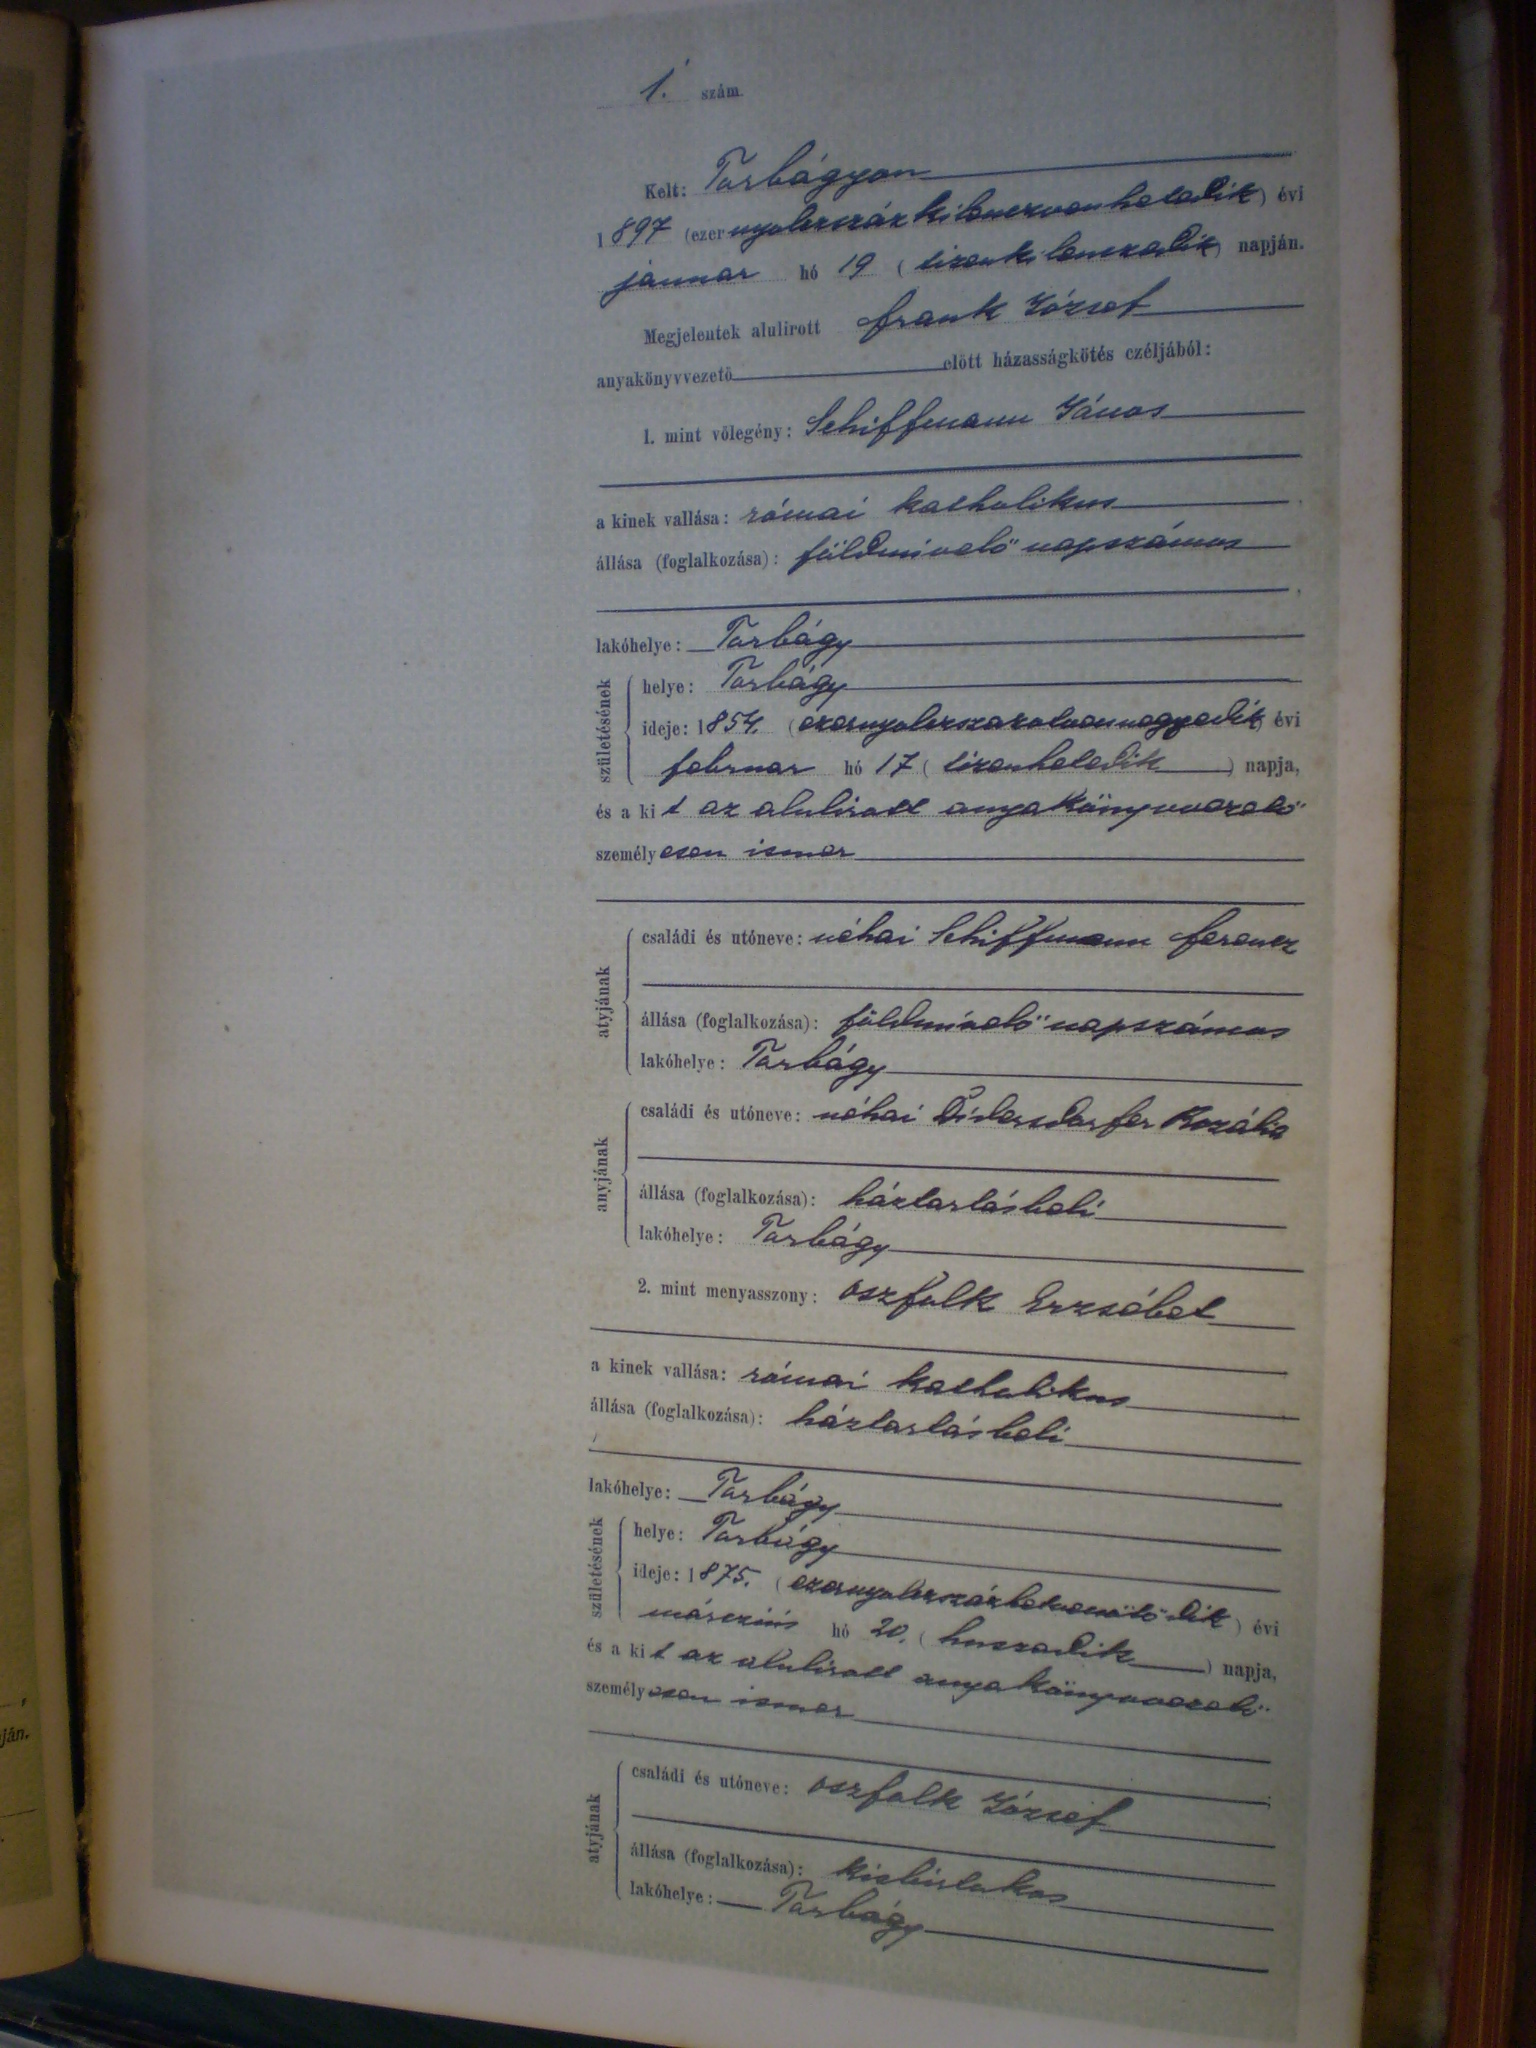 1. szám.
Kelt: Torbágyon
1897 (ezer nyolczszáz kilenczvenhetedik) évi
januar hó 19 (tizenkilenczedik) napján.
Megjelentek alulirott Frank József
anyakönyvvezető előtt házasságkötés czéljából:
1. mint vőlegény: Schiffmann János
a kinek vallása: római katholikus
állása (foglalkozása): földmívelő napszámos
lakóhelye: Torbágy
születésének
helye: Torbágy
ideje: 1854. (ezernyolczszazötvennegyedik) évi
februar hó 17 (tizenhetedik) napja,
és a kit az alulirott anyakönyvvezető
személyesen ismer
atyjának
családi és utóneve: néhai Schiffmann Ferencz
állása (foglalkozása): földmívelő napszámos
lakóhelye: Torbágy
anyjának
családi és utóneve: néhai Rozália
állása (foglalkozása): háztartásbeli
lakóhelye: Torbágy
2. mint menyasszony: Oszfolk Erzsébet
a kinek vallása: római katholikus
állása (foglalkozása): háztartásbeli
lakóhelye: Torbágy
születésének
helye: Torbágy
ideje: 1875. (ezernyolczszázhetvenötödik) évi
márczius hó 20. (huszadik) napja,
és a kit az alulirott anyakönyvvezető
személyesen ismer
atyjának
családi és utóneve: Oszfolk József
állása (foglalkozása): kisbirtokos
lakóhelye: Torbágy
ján.